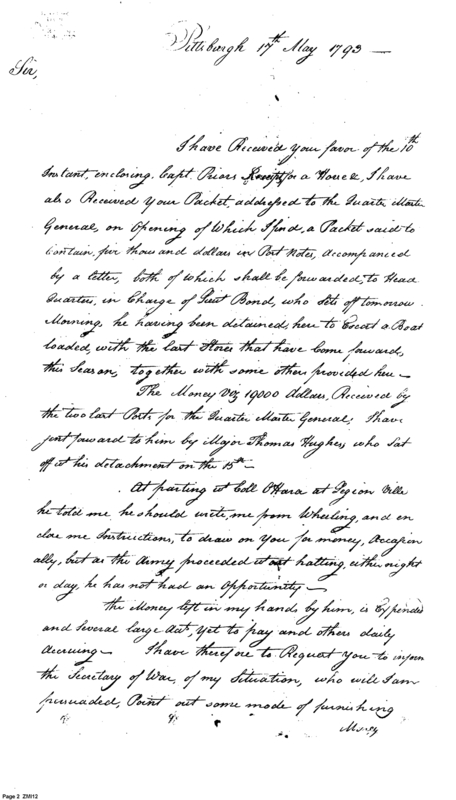 Pittsburgh 17th May 1793 —
Sir,
I have Received your favor of the 10th
Instant, enclosing Capt. Priors Receipt for a Horse &, I have
also Received your Packet, addressed to the Quarter Master
General, on Opening of Which I find, a Packet said to
Contain, five thousand dollars in Post Notes, accompanied
by a letter, both of which shall be forwarded, to Head
Quarters, in Charge of Lieut Bond, who Sets off tomorrow
Morning, he having been detained, here to Escort a Boat
loaded, with the last Stores that have Come forward,
this Season, together with some others provided here —
The Money Viz 19000 dollars, Received by
the two last Posts, for the Quarter Master General, I have
just forward to him by Major Thomas Hughes, who Sat
off wt his detachment on the 15th —
At parting wt Coll O'Hara at Legion Ville
he told me he should write, me from Wheeling, and en
close me Instructions, to draw on You for money, Occasion
ally, but as the Army proceeded wtout halting, either night
or day, he has not had an Opportunity —
the Money left in my hands by him, is Expended
and Several large Acts, yet to pay and others daily
accruing — I have therefore to Request You to inform
the Secretary of War, of my Situation, who will I am
persuaded, Point out some mode of furnishing
Money
Page 2 ZMI12